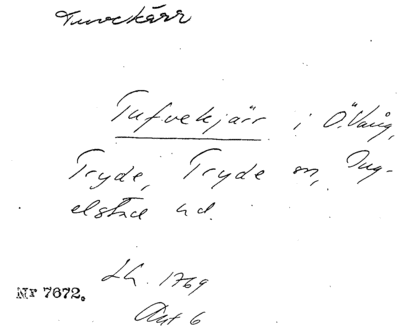 Tuvekärr
Tufvekjärr i Ö. Vång,
Tryde, Tryde sn, Ing-
elstad hd.
Lh. 1769
Akt 6
Nr 7672.